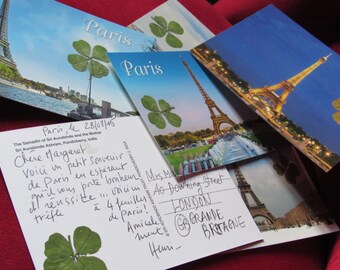 Paris
Paris
The Samadhi of Sri Aurobindo and the Mother
Sri Aurobindo Ashram, Pondicherry, India
Paris, le 28/08/15
Chère Margaret
Voici un petit souvenir
de Paris en espérant
qu'il vous porte bonheur
et réussite... voici un
trèfle à 4 feuilles
de Paris!
Amicalement
Henri
10 Downing Street
LONDON
GRANDE
BRETAGNE